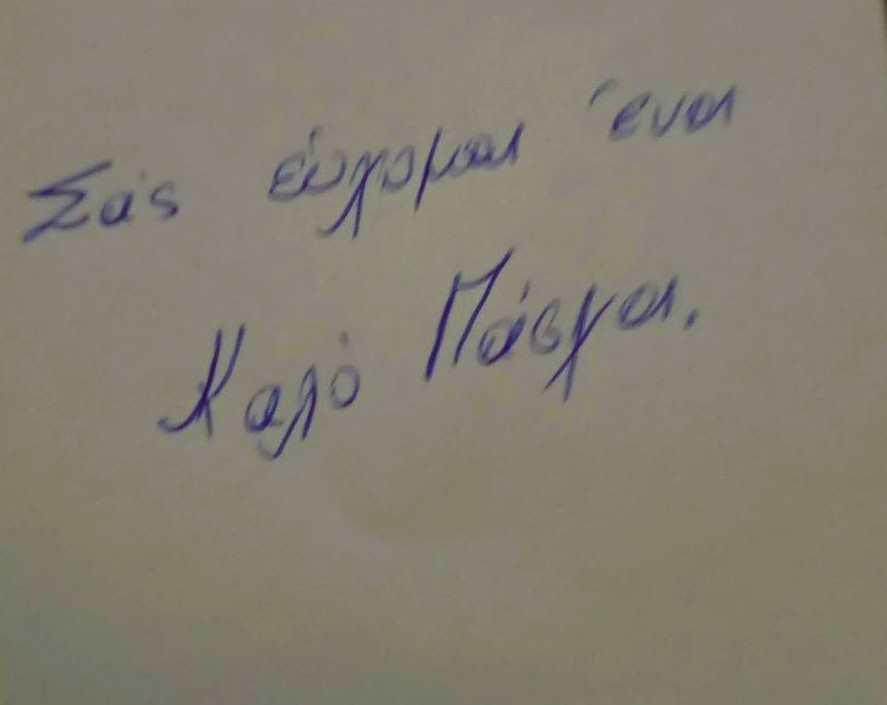 Σάς εύχομαι ένα
Καλό Πάσχα.